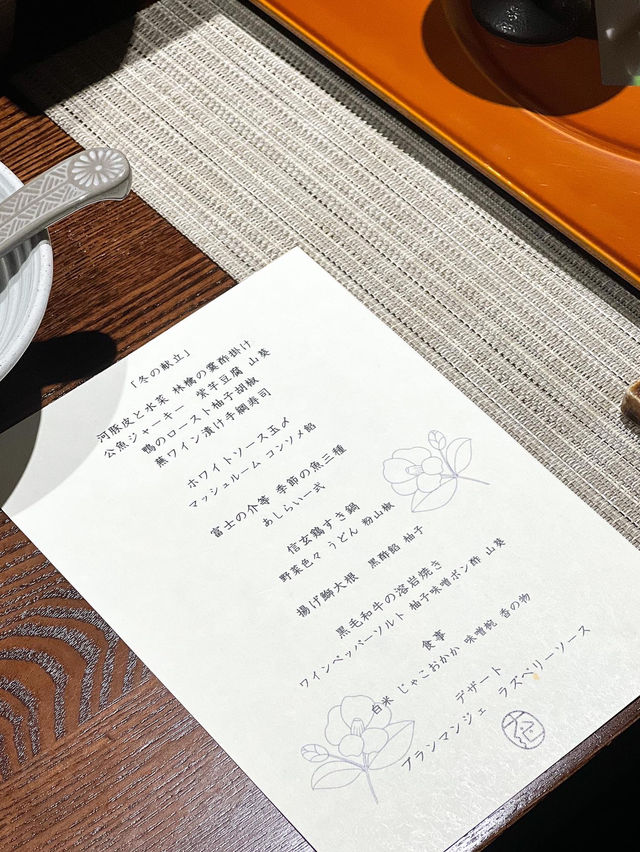 「冬の献立」
河豚皮と水菜 林檎の黄酢掛け
公魚ジャーキー 紫芋豆腐 山葵
鴨のロースト柚子胡椒
蕪ワイン漬け手綱寿司
ホワイトソース玉〆
マッシュルーム コンソメ餡
富士の介等 季節の魚三種
あしらい一式
信玄鶏すき鍋
野菜色々 うどん 粉山椒
揚げ鰤大根 黒酢餡 柚子
黒毛和牛の溶岩焼き
ワインペッパーソルト 柚子味噌ポン酢 山葵
食事
白米 じゃこおかか 味噌椀 香の物
デザート
ブランマンジェ ラズベリーソース